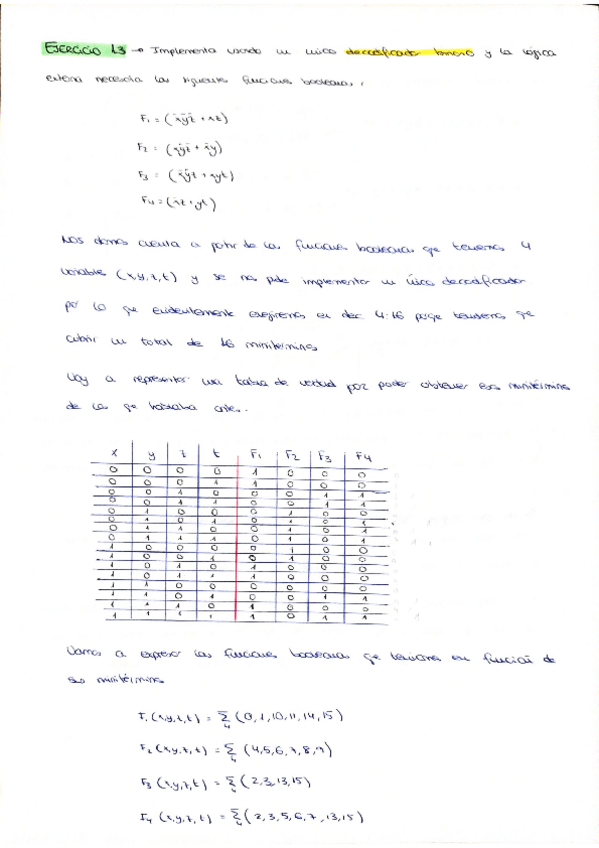 EJERCICIO 1.3 → Implementa usando un único decodificador binario y la lógica
externa necesaria las siguientes funciones booleanas:
F₁ = (x̄ȳz̄ + xz)
F₂ = (xȳz̄ + x̄y)
F₃ = (x̄ȳz + xyt)
F₄ = (x̄z + yt)
Nos damos cuenta a partir de las funciones booleanas que tenemos 4
variables (x,y,z,t) y se nos pide implementar un único decodificador
por lo que evidentemente elegiremos un dec 4:16 porque tendremos que
cubrir un total de 16 minitérminos
Voy a representar una tabla de verdad para poder obtener esos minitérminos
de los que hablaba antes.
x y z t F₁ F₂ F₃ F₄
0 0 0 0 1 0 0 0
0 0 0 1 1 0 0 0
0 0 1 0 0 0 1 1
0 0 1 1 0 0 1 1
0 1 0 0 0 1 0 0
0 1 0 1 0 1 0 1
0 1 1 0 0 1 0 1
0 1 1 1 0 1 0 1
1 0 0 0 0 1 0 0
1 0 0 1 0 1 0 0
1 0 1 0 1 0 0 0
1 0 1 1 1 0 0 0
1 1 0 0 0 0 0 0
1 1 0 1 0 0 1 1
1 1 1 0 1 0 0 0
1 1 1 1 1 0 1 1
Vamos a expresar las funciones booleanas que tenemos en función de
sus minitérminos
F₁ (x,y,z,t) = Σ₄ (0,1,10,11,14,15)
F₂ (x,y,z,t) = Σ₄ (4,5,6,7,8,9)
F₃ (x,y,z,t) = Σ₄ (2,3,13,15)
F₄ (x,y,z,t) = Σ₄ (2,3,5,6,7,13,15)